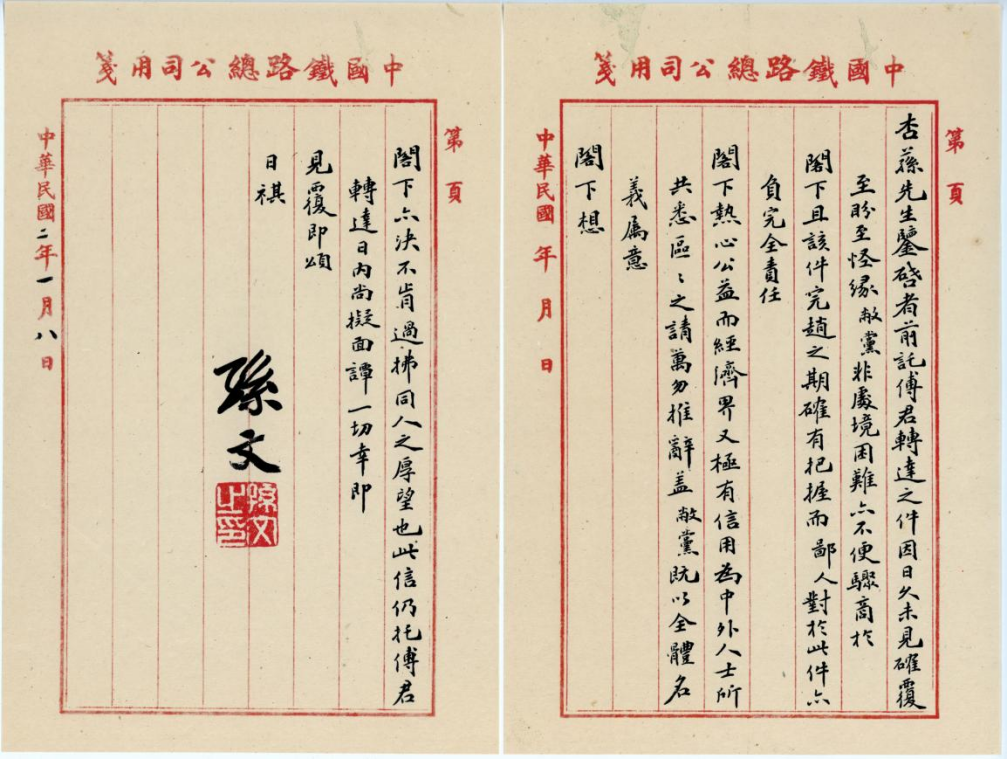 中國鐵路總公司用箋
第 頁
杏蓀先生鑒啓者前託傅君轉達之件因日久未見確覆
至盼至怪緣敝黨非處境困難亦不便驟商於
閣下且該件完趙之期確有把握而鄙人對於此件亦
負完全責任
閣下熱心公益而經濟界又極有信用為中外人士所
共悉區〻之請萬勿推辭蓋敝黨既以全體名
義属意
閣下想
中華民國 年 月 日
中國鐵路總公司用箋
第 頁
閣下亦決不肯過拂同人之厚望也此信仍托傅君
轉達日內尚擬面譚一切幸即
見覆即頌
日祺
孫文
孫文之印
中華民國二年一月八日